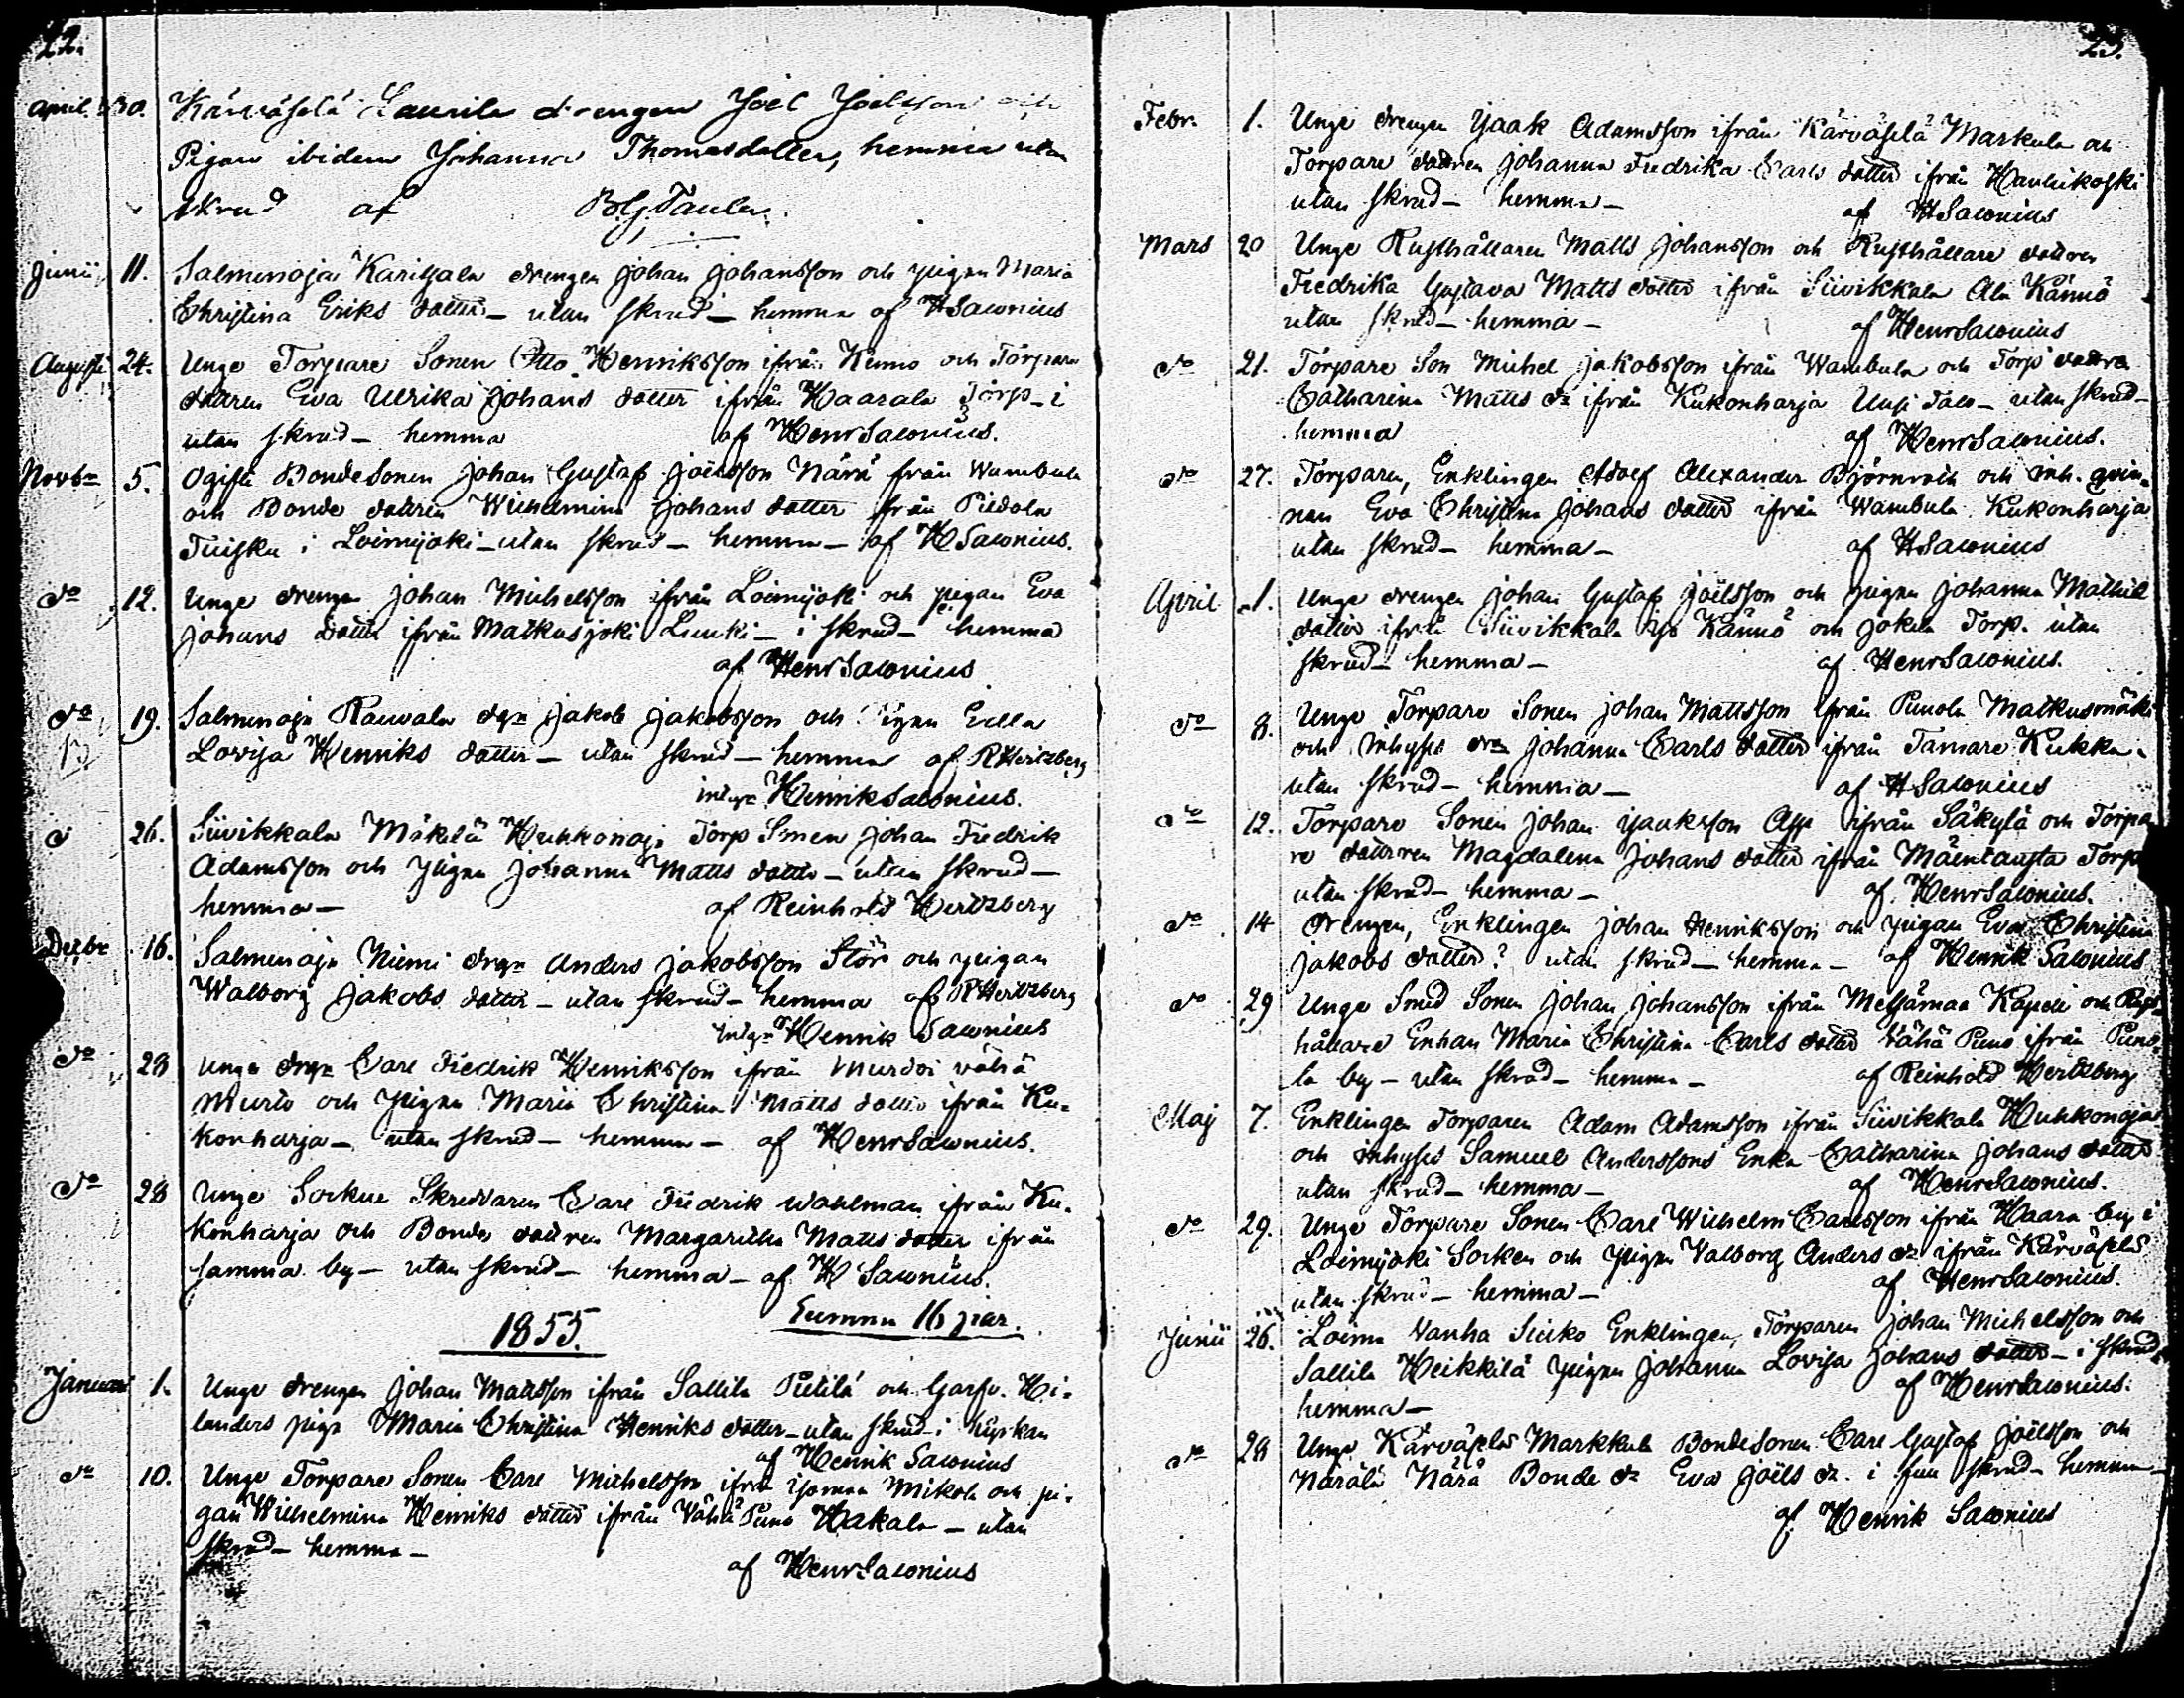 22.
April. 30. Kärväselä Laurila drengen Joel Joelsson och
Pigan ibidem Johanna Thomasdotter, hemma utan
skrud af B.G. Taulen.
Junii 11. Salmenoja Karitsala drengen Johan Johansson och pigan Maria
Christina Eriks dotter – utan skrud – hemma af H Salonius
Augusti 24. Unge Torpare Sonen Otto Henriksson ifrån Kuino och Torpare
dottren Eva Ulrika Johans dotter ifrån Haarala Torp – i
utan skrud – hemma af Henr Salonius.
Novbr 5. Ogifta Bondesonen Johan Gustaf Joëlsson Närä från Wambula
och Bonde dottren Wilhelmina Johans dotter från Piedola
Tuisku i Loimijoki – utan skrud – hemma – af H Salonius.
do 12. Unge drengen Johan Michelsson ifrån Loimijoki och pigan Eva
Johans dotter ifrån Matkusjoki – i skrud – hemma
af Henr Salonius
do 19. Salmenoja Rauvala dgn Jakob Jakobsson och Pigan Ulla
Lovisa Henriks dotter – utan skrud – hemma af R Hertzberg
intygr Henrik Salonius.
d 26. Siivikkala Mäkelä Huhkonoja Torp Sonen Johan Fredrik
Adamsson och Pigan Johanna Matts dotter – utan skrud –
hemma – af Reinhold Hertzberg
Decbr 16. Salmenoja Niemi drgn Anders Jakobsson Stör och pigan
Walborg Jakobs dotter – utan skrud – hemma af R Hertzberg
intygr Henrik Salonius
do 28 Unge drgn Carl Fredrik Henriksson ifrån Murdoi vähä
Murto och Pigan Maria Christina Matts dotter ifrån Ku-
konharja – utan skrud – hemma – af Henr Salonius.
do 28 Unge Sockne Skreddaren Carl Fredrik Wahlman ifrån Ku-
konharja och Bonde dottren Margaretha Matts dotter ifrån
samma by – utan skrud – hemma – af H Salonius.
Summa 16 par.
1855.
Januari 1. Unge drengen Johan Mattsson ifrån Sallila Pietilä och Garfv. Hi-
landers piga Maria Christina Henriks dotter – utan skrud – i kyrkan
af Henrik Salonius
do 10. Unge Torpare Sonen Carl Michelsson ifrån Mikola och pi-
gan Wilhelmina Henriks dotter ifrån Vähä Puno Hakala – utan
skrud – hemma –
af Henr Salonius
23.
Febr. 1. Unge drengen Isaak Adamsson ifrån Kärväselä Markula och
Torpare dottren Johanna Fredrika Carls dotter ifrån Hanhikoski
utan skrud – hemma – af H Salonius
Mars 20 Unge Rusthållaren Matts Johansson och Rusthållare dottren
Fredrika Gustava Matts dotter ifrån Siivikkala Ala Kännö
utan skrud – hemma – af Henr Salonius
do 21. Torpare Son Michel Jakobsson ifrån Wambula och Torp dottren
Catharina Matts dr ifrån Kukonharja Uusi Talo – utan skrud –
hemma af Henr Salonius.
do 27. Torparen, Enklingen Adolf Alexander Björnroth och inh. qvin-
nan Eva Christina Johans dotter ifrån Wambula Kukonharja
utan skrud – hemma – af H Salonius
April 1. Unge drengen Johan Gustaf Joëlsson och pigan Johanna Mathil
dotter ifrån Siivikkala Yli Kännö och Jokela Torp. utan
skrud – hemma – af Henr Salonius.
do 8. Unge Torpare Sonen Johan Mattsson ifrån Punola Matkusmäki
och inhyses dr Johanna Carls dotter ifrån Tamare Kukka –
utan skrud – hemma – af H Salonius
do 12. Torpare Sonen Johan Isaksson App ifrån Säkylä och Torpa-
re dottren Magdalena Johans dotter ifrån Mäentausta Torp
utan skrud – hemma – af Henr Salonius.
do 14 drengen, Enklingen Johan Henriksson och pigan Eva Christina
Jakobs dotter? utan skrud – hemma – af Henrik Salonius
do 29 Unge Smed Sonen Johan Johansson ifrån Metsämaa Kapell och Rust-
hållare Enkan Maria Christina Carls dotter Vähä Puno ifrån Puno-
la by – utan skrud – hemma – af Reinhold Hertzberg
Maj 7. Enklingen Torparen Adam Adamsson ifrån Siivikkala Huhkonoja
och inhyses Samuel Anderssons Enka Catharina Johans dotter
utan skrud – hemma – af Henr Salonius.
do 29. Unge Torpare Sonen Carl Wilhelm Carlsson ifrån Haara by i
Loimijoki Socken och pigan Valborg Anders dr ifrån Kärväselä
utan skrud – hemma – af Henr Salonius.
Junii 26. Loima Vanha Enklingen, Torparen Johan Michelsson och
Sallila Heikkilä pigan Johanna Lovisa Johans dotter – i skrud
hemma – af Henr Salonius.
do 28 Unge Kärväselä Markkula Bondesonen Carl Gustaf Joëlsson och
Närälä Närä Bonde dr Eva Joëls dr. i full skrud – hemma –
af Henrik Salonius